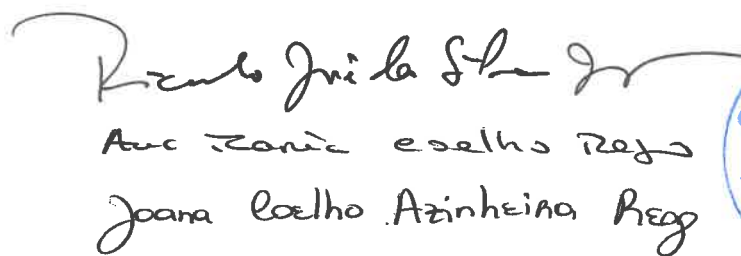 Ricardo José da Silva
Ana Maria Coelho Rego
Joana Coelho Azinheira Rego